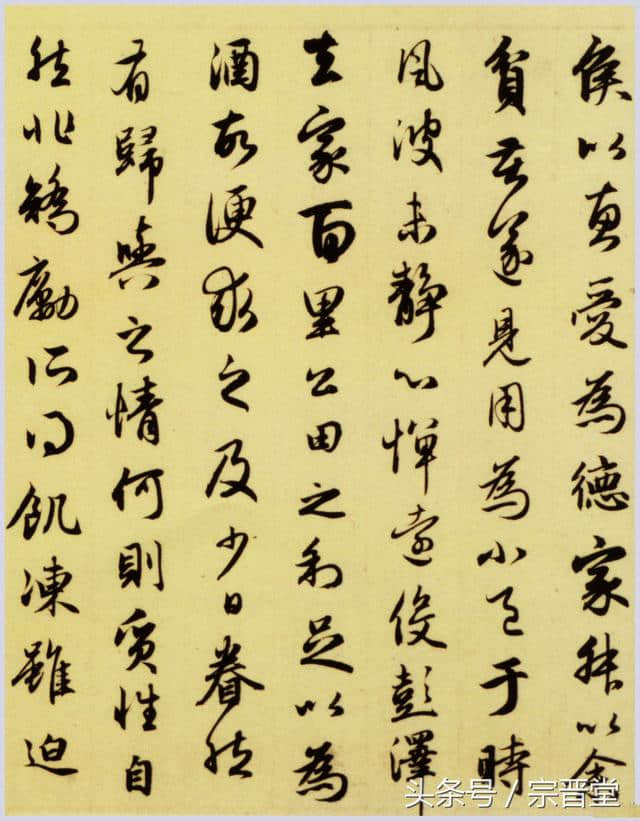 侯以惠愛為德家叔以余
貧苦遂見用為小邑于時
風波未靜心憚遠役彭澤
去家百里公田之利足以為
酒故便求之及少日眷然
有歸與之情何則質性自
然非矯勵所得飢凍雖迫
头条号 / 宗晋堂